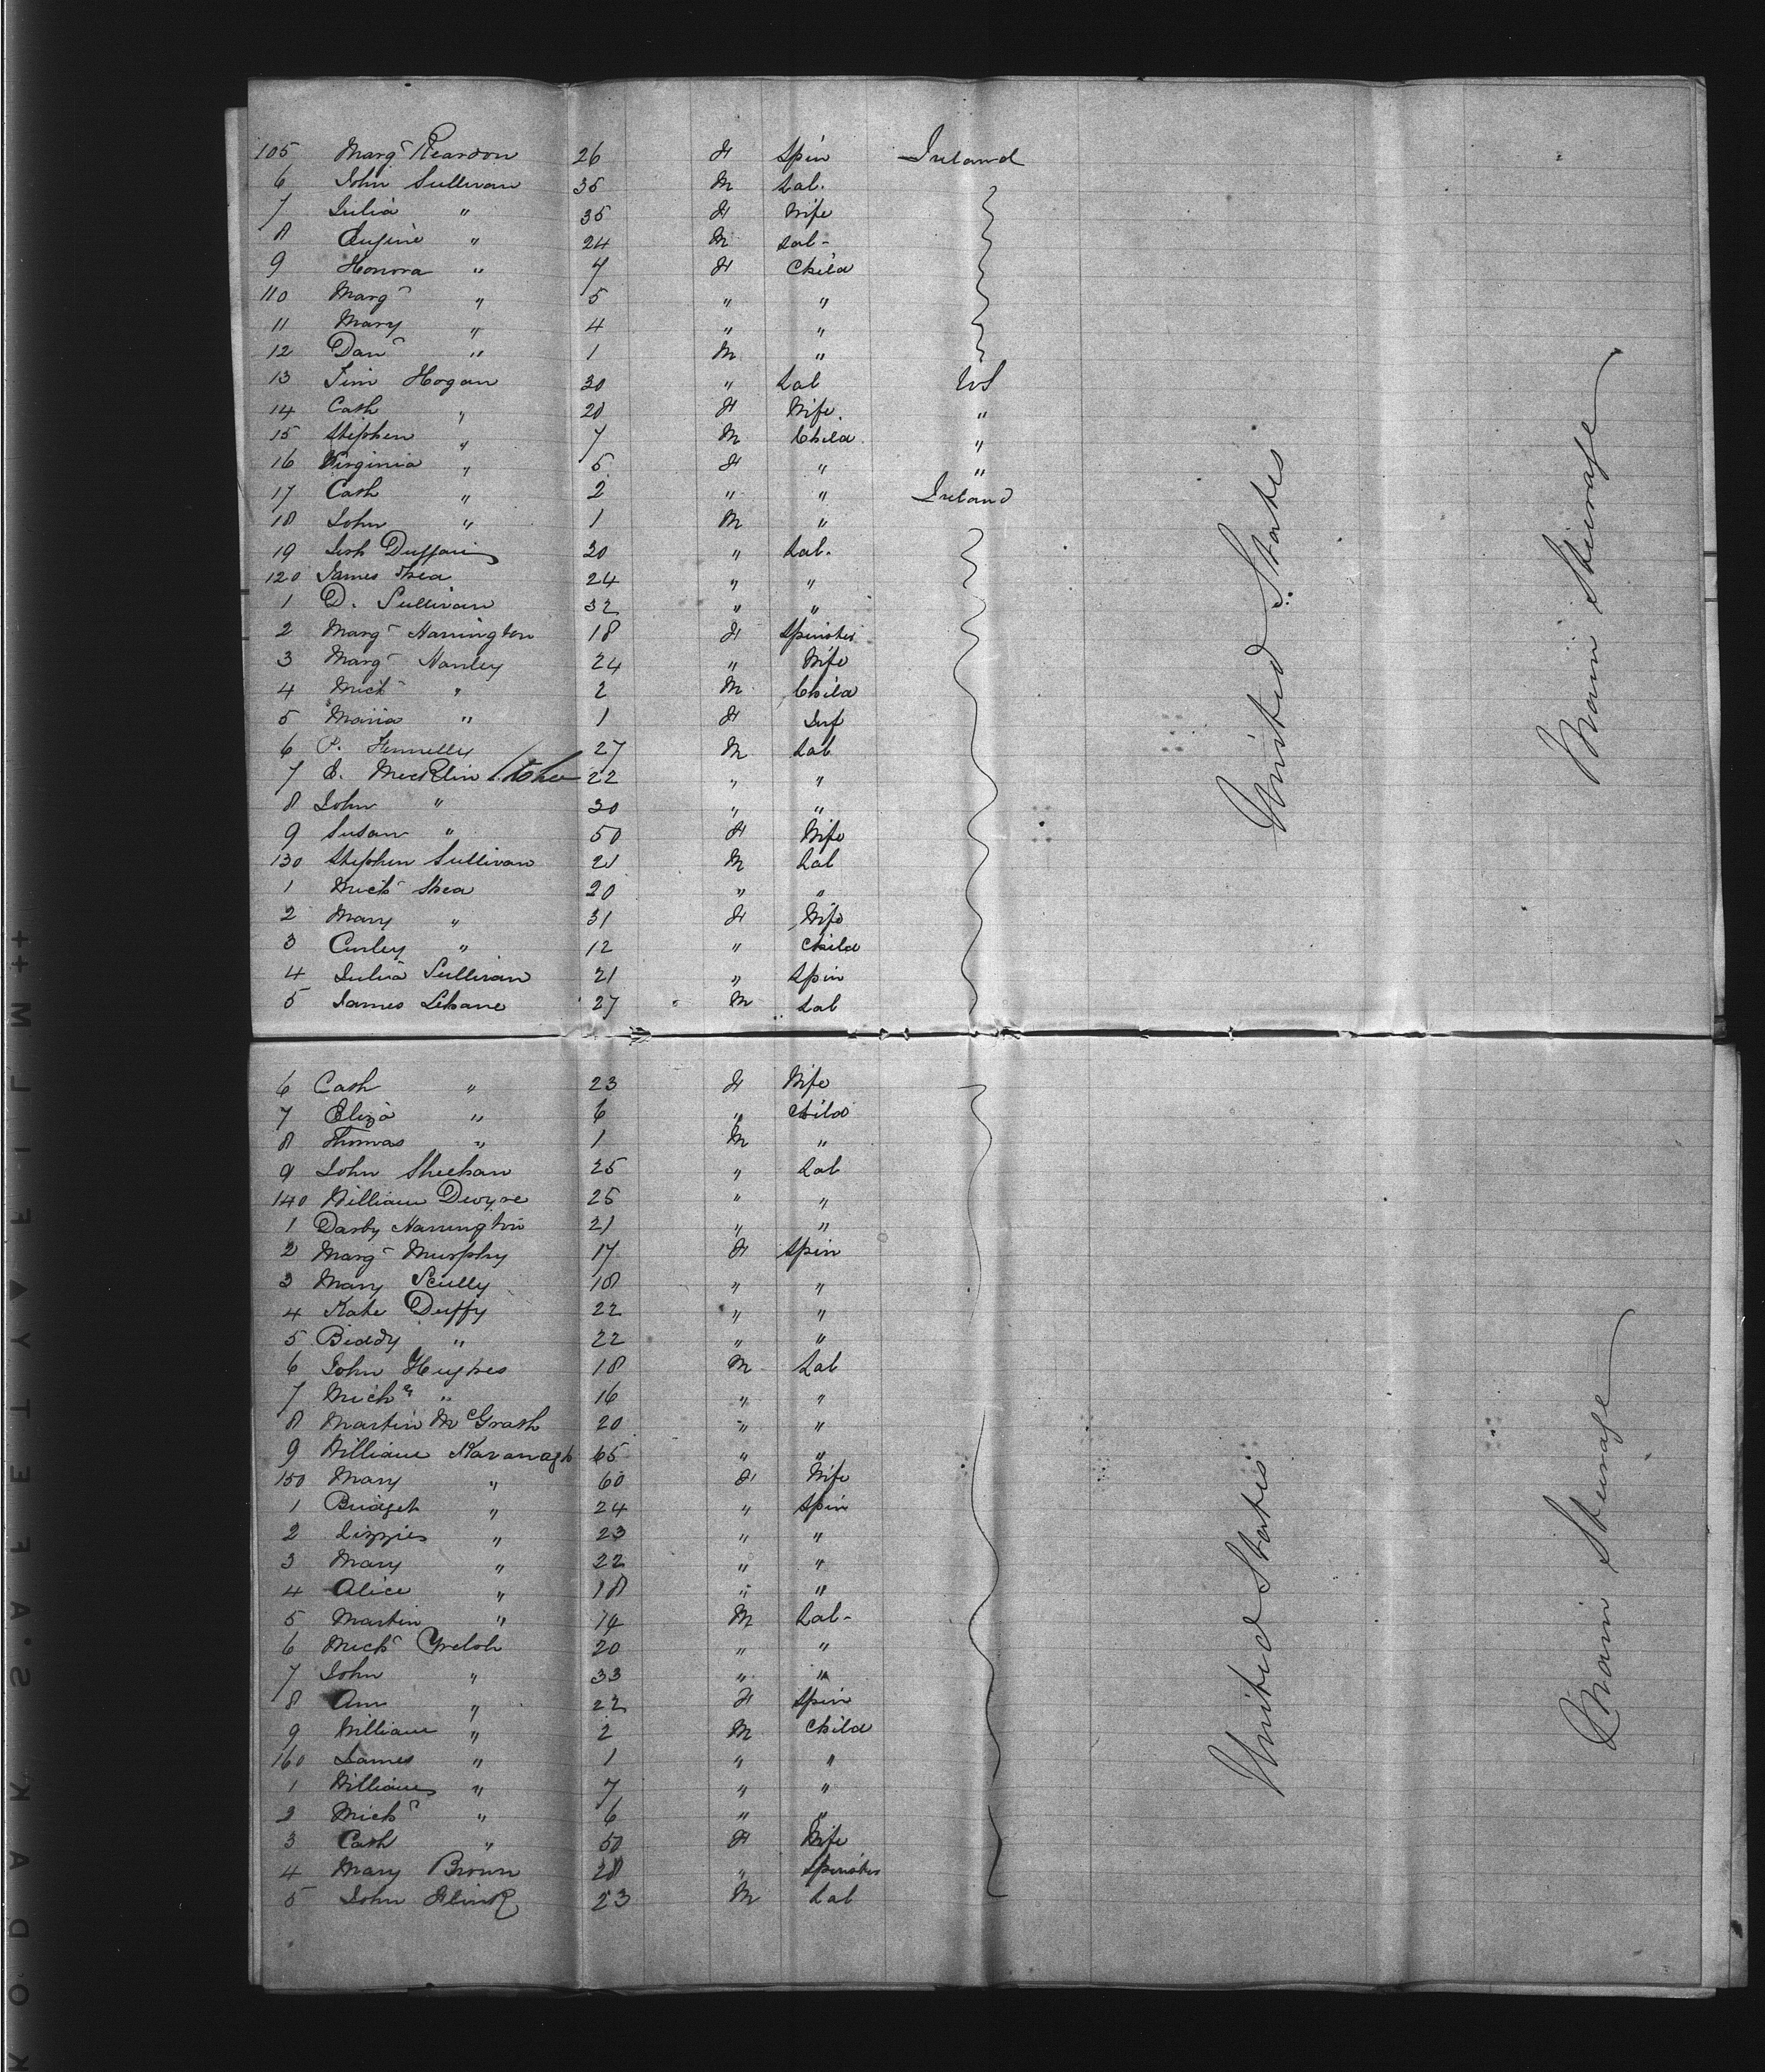 105 Margt Reardon 26 F Spin Ireland
6 John Sullivan 35 M Lab.
7 Julia " 35 F Wife
8 Eugine " 24 M Lab-
9 Honora " 7 F Child
110 Margt " 5 " "
11 Mary " 4 " "
12 Danl " 1 M "
13 Tim Hogan 30 " Lab US
14 Cath " 28 F Wife. "
15 Stephen " 7 M Child "
16 Virginia " 5 F " "
17 Cath " 2 " " Ireland
18 John " 1 M "
19 30 " Lab.
120 James Shea 24 " "
1 D. Sullivan 32 " "
2 Margt Harrington 18 F Spinster
3 Margt Hanley 24 " Wife
4 Michl " 2 M Child
5 Maria " 1 F Inf
6 P. Fennelly 27 M Lab
7 22 " "
8 John " 30 " "
9 Susan " 50 F Wife
130 Stephen Sullivan 21 M Lab
1 Michl Shea 20 " "
2 Mary " 31 F Wife
3 Curley " 12 " Child
4 Julia Sullivan 21 " Spin
5 James Lehane 27 M Lab
United States
Main Steerage
6 Cath " 23 F Wife
7 Eliza " 6 " Child
8 Thomas " 1 M "
9 John Sheehan 25 " Lab
140 William Dwyre 25 " "
1 Darby Harrington 21 " "
2 Margt Murphy 17 F Spin
3 Mary Scully 18 " "
4 Kate Duffy 22 " "
5 Biddy " 22 " "
6 John Hughes 18 M Lab
7 Michl " 16 " "
8 Martin McGrath 20 " "
9 William Kavanagh 65 " "
150 Mary " 60 F Wife
1 Bridget " 24 " Spin
2 Lizzie " 23 " "
3 Mary " 22 " "
4 Alice " 18 " "
5 Martin " 14 M Lab-
6 Michl Welsh 20 " "
7 John " 33 " "
8 Ann " 22 F Spin
9 William " 2 M Child
160 James " 1 " "
1 William " 7 " "
2 Michl " 6 " "
3 Cath " 50 F Wife
4 Mary Brown 28 " Spinster
5 John Flink 23 M Lab
United States
Main Steerage
KODAK·SAFETY ▲ FILM ++